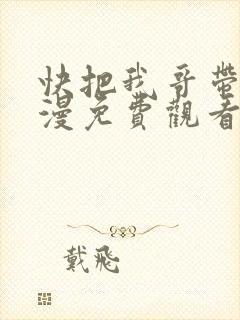 快把我哥帶
漫免費觀看
戴飛